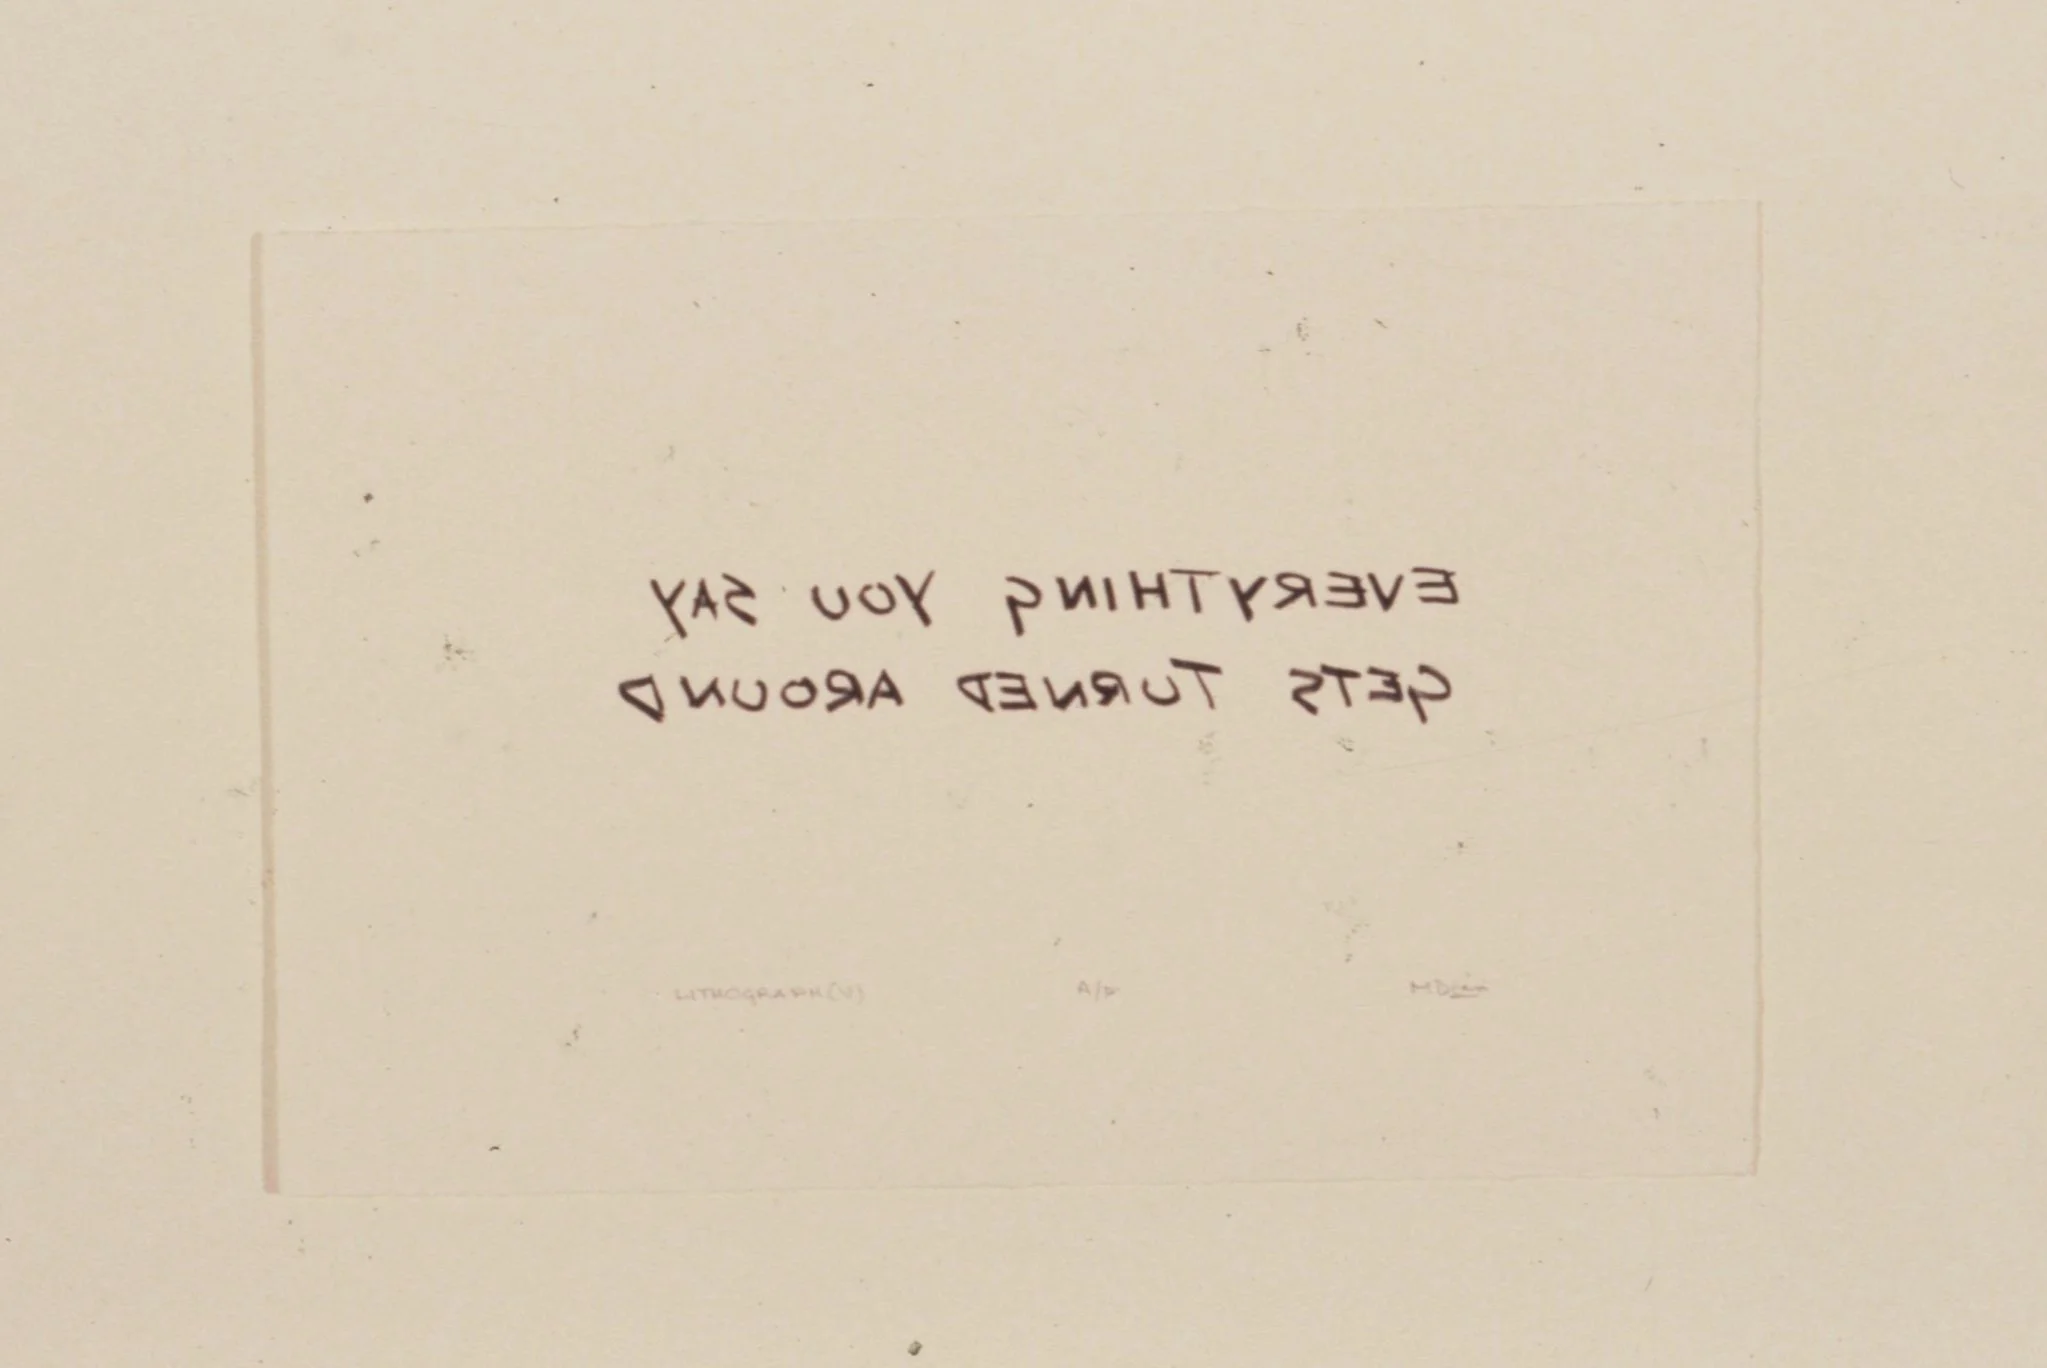 EVERYTHING YOU SAY
GETS TURNED AROUND
LITHOGRAPH (V) A/P